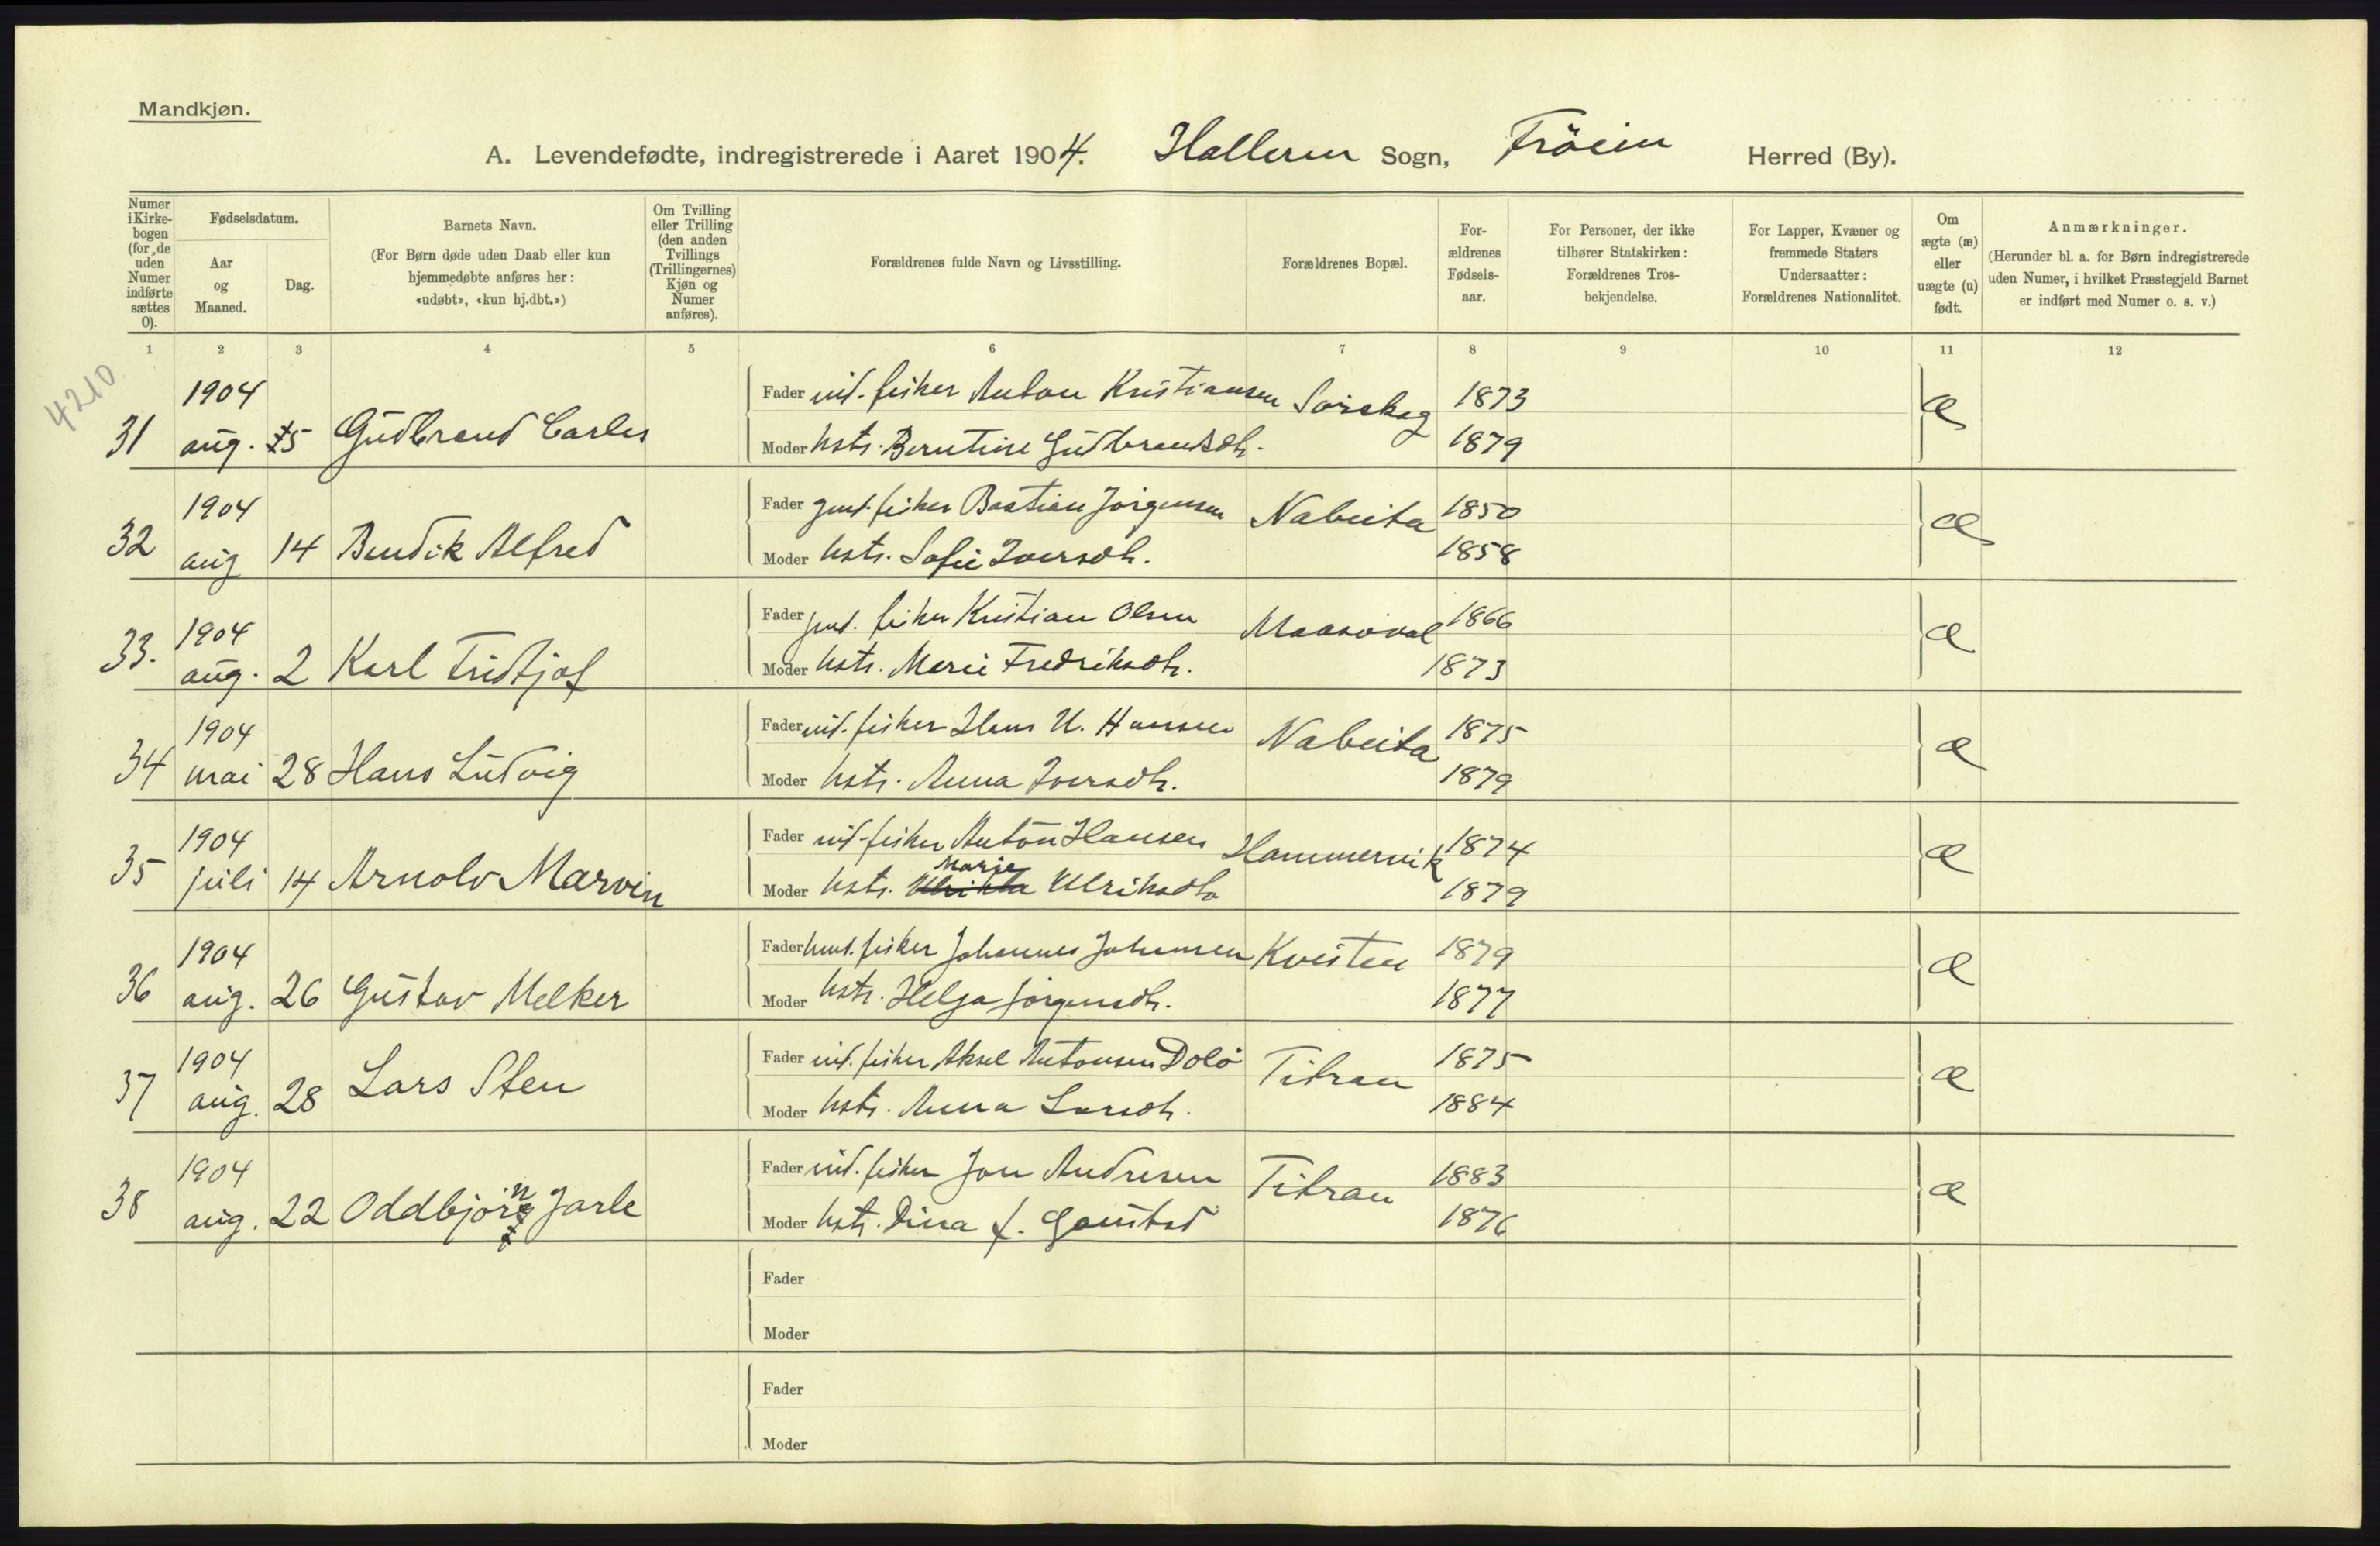 Mandkjøn.
A. Levendefødte, indregistrerede i Aaret 1904. Halleren Sogn, Fröien Herred (By).
Numer i Kirkebogen (for de uden Numer indførte sættes 0).
Fødselsdatum.
Aar og Maaned.
Dag.
Barnets Navn.
(For Børn døde uden Daab eller kun hjemmedøbte anføres her: «udøbt», «kun hj.dbt.»)
Om Tvilling eller Trilling (den anden Tvillings (Trillingernes) Kjøn og Numer anføres).
Forældrenes fulde Navn og Livsstilling.
Forældrenes Bopæl.
Forældrenes Fødselsaar.
For Personer, der ikke tilhører Statskirken: Forældrenes Trosbekjendelse.
For Lapper, Kvæner og fremmede Staters Undersaatter: Forældrenes Nationalitet.
Om ægte (æ) eller uægte (u) født.
Anmærkninger.
(Herunder bl. a. for Børn indregistrerede uden Numer, i hvilket Præstegjeld Barnet er indført med Numer o. s. v.)
1 2 3 4 5 6 7 8 9 10 11 12
4210
1904 Fader ind. fisker Anton Kristiansen Sörskag 1873 æ
31 aug. 5 Gudbrand Carles Moder hstr. Berntine Gudbrandsdtr. 1879
1904 Fader gmd. fisker Bastian Jörgensen Nabeita 1850 æ
32 aug 14 Bendik Alfred Moder hstr. Sofie Iversdtr. 1858
1904 Fader gmd. fisker Kristian Olsen Maasöval 1866 æ
33. aug. 2 Karl Fridtjof Moder hstr. Merie Fredriksdtr. 1873
1904 Fader ind. fisker Hans U. Hansen Nabeita 1875 æ
34 mai 28 Hans Ludvig Moder hstr. Anna Iversdtr. 1879
1904 Fader ind. fisker Anton Hansen Hammervik 1874 æ
Marie
35 juli 14 Arnolv Marvin Moder hstr. Ulrikka Ulriksdtr 1879
1904 Fader hmd. fisker Johannes Johansen Kvisten 1879 æ
36 aug. 26 Gustav Melker Moder hstr. Helga Jörgensdtr. 1877
1904 Fader ind. fisker Aksel Antonsen Dolö Titran 1875 æ
37 aug. 28 Lars Sten Moder hstr. Anna Larsdtr. 1884
1904 Fader ind. fisker Jon Andresen Titran 1883 æ
38 aug. 22 Oddbjörn Jarle Moder hstr. Dina f. Gaustad 1876
Fader
Moder
Fader
Moder